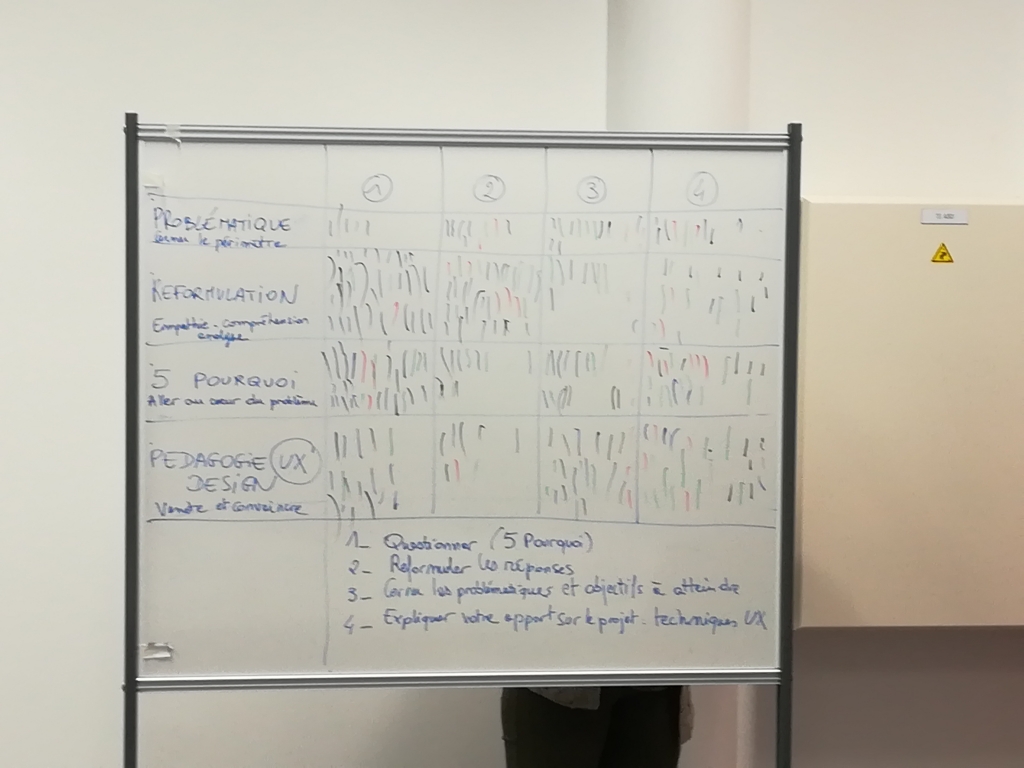 1 2 3 4
PROBLÉMATIQUE
Cerner le périmètre
REFORMULATION
Empathie - compréhension
analyse
5 POURQUOI
Aller au cœur du problème
PEDAGOGIE UX
DESIGN
Vendre et convaincre
1_ Questionner (5 Pourquoi)
2_ Reformuler les réponses
3_ Cerner les problématiques et objectifs à atteindre
4_ Expliquer votre apport sur le projet. techniques UX